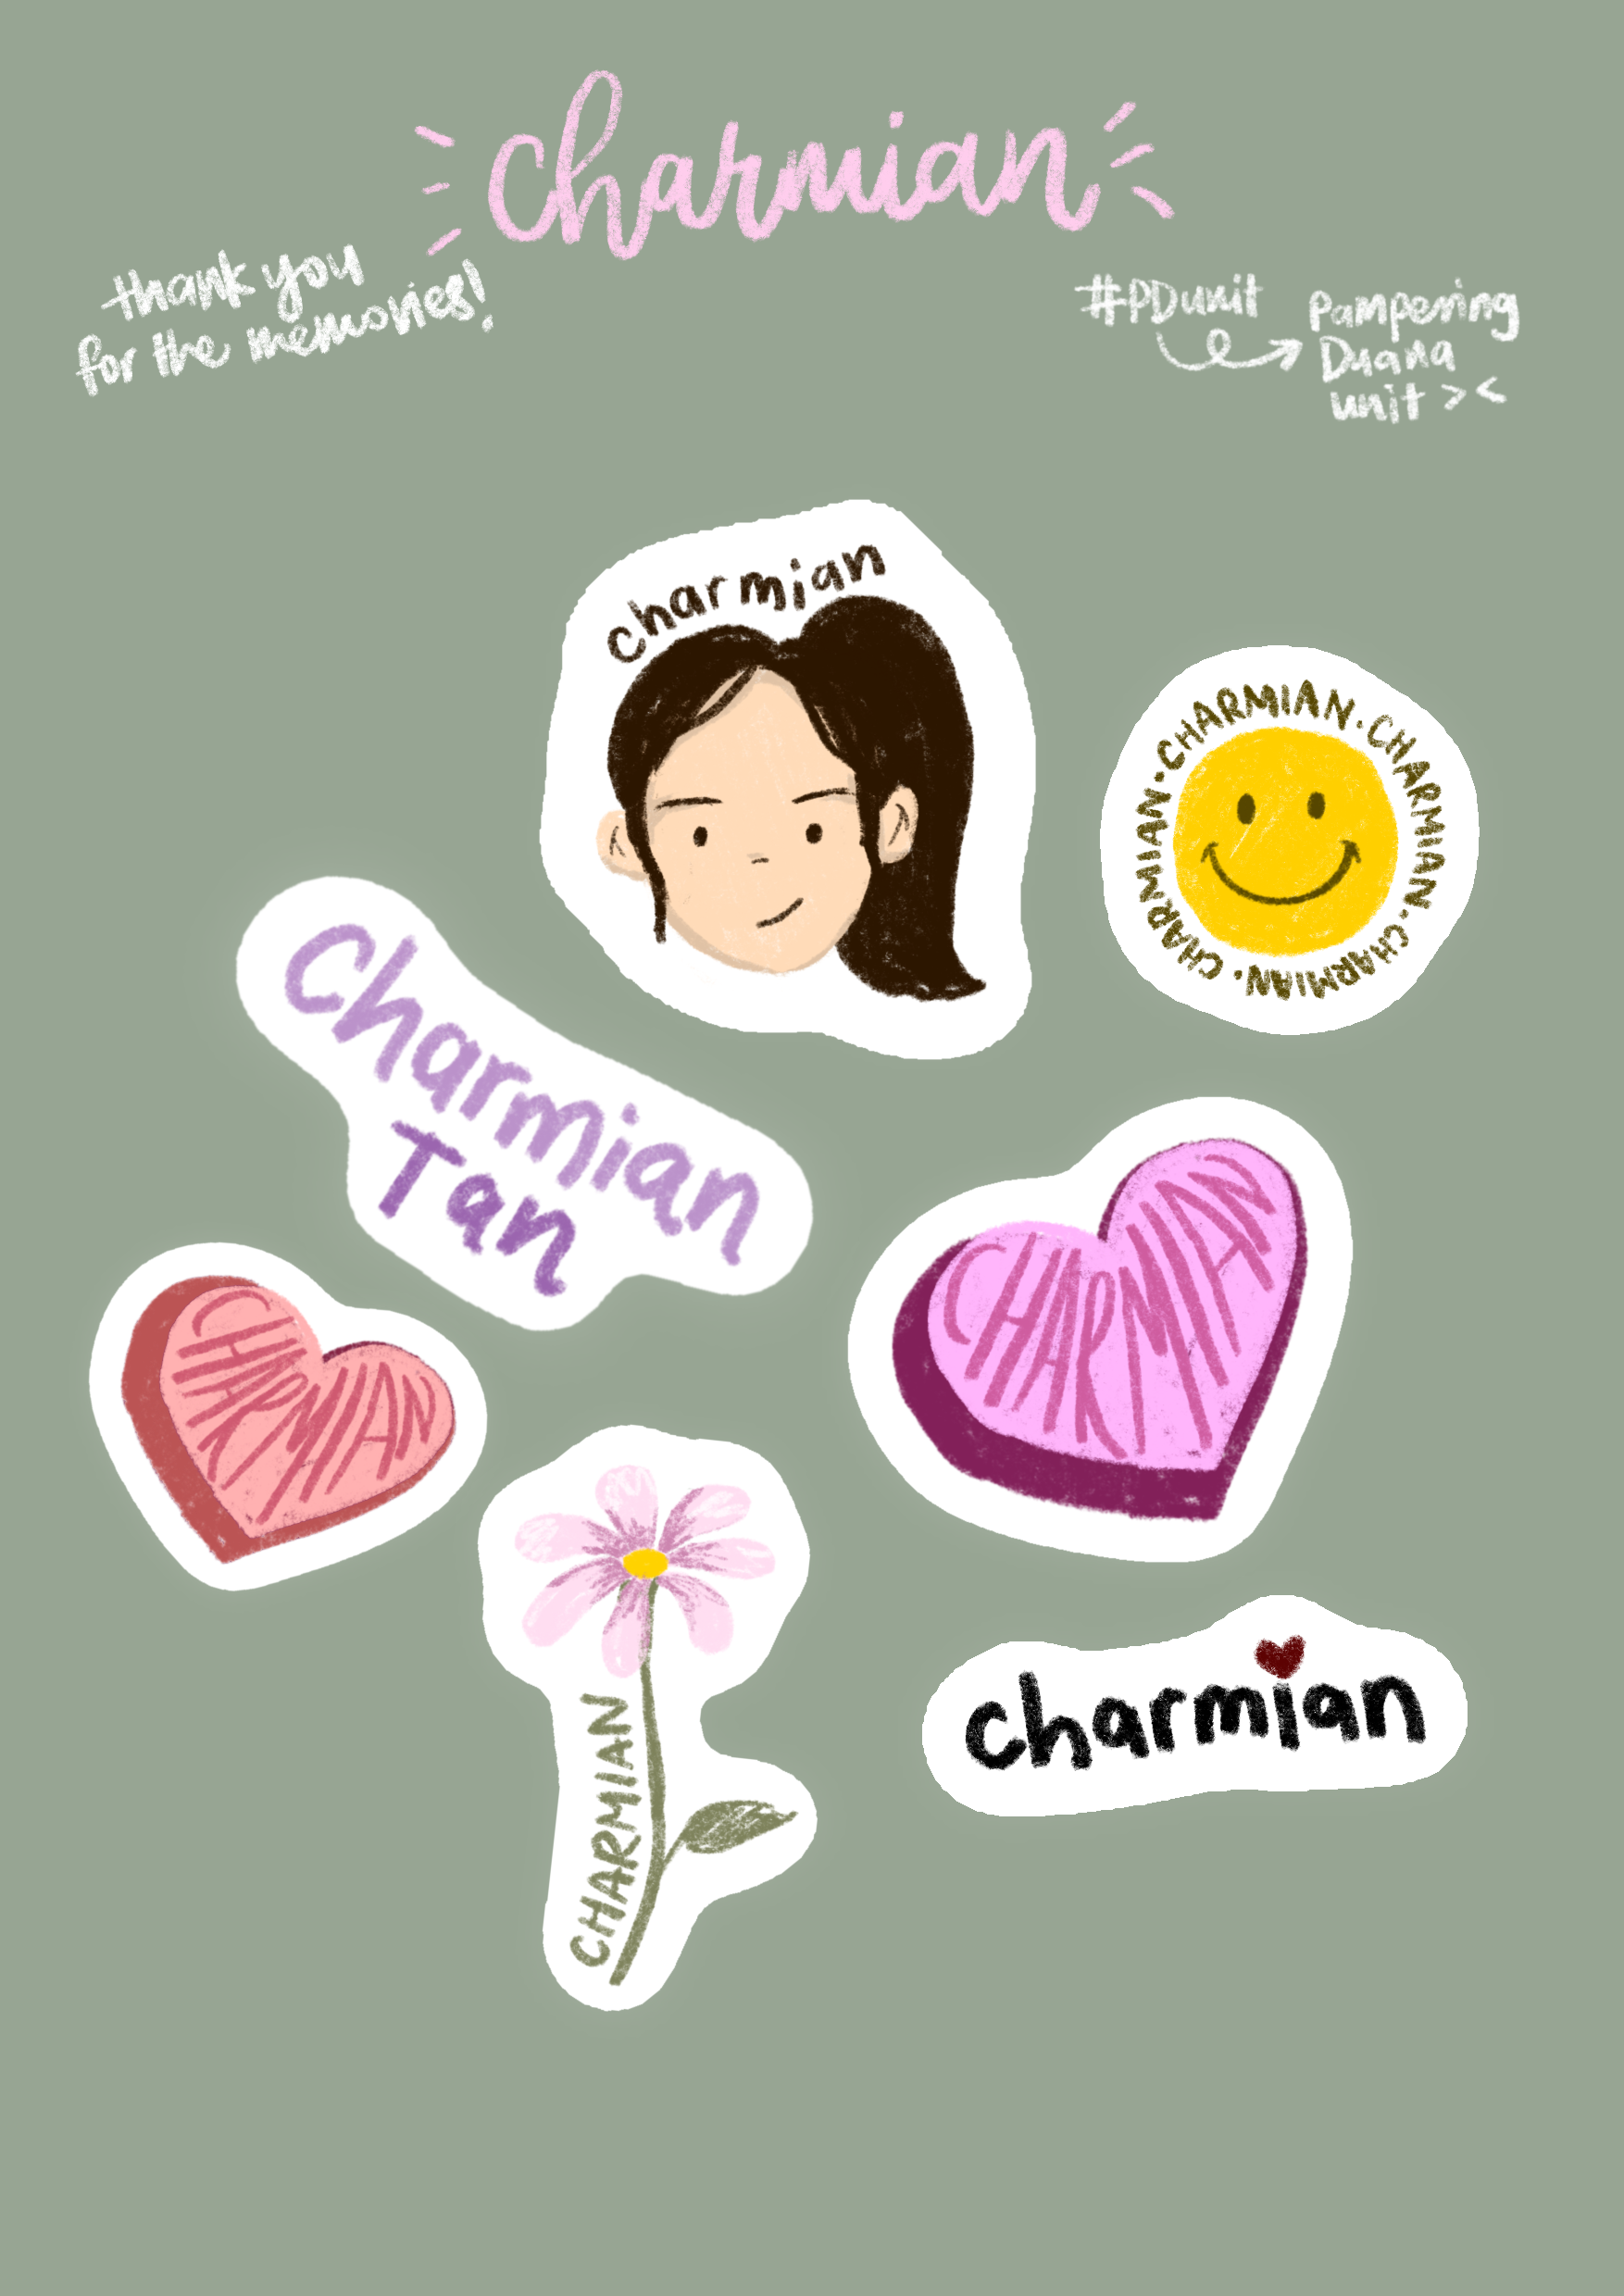 charmian
thank you
for the memories!
#PDunit
Pampering
Duana
unit ><
charmian
CHARMIAN · CHARMIAN · CHARMIAN · CHARMIAN ·
Charmian
Tan
CHARMIAN
CHARMIAN
CHARMIAN
charmian